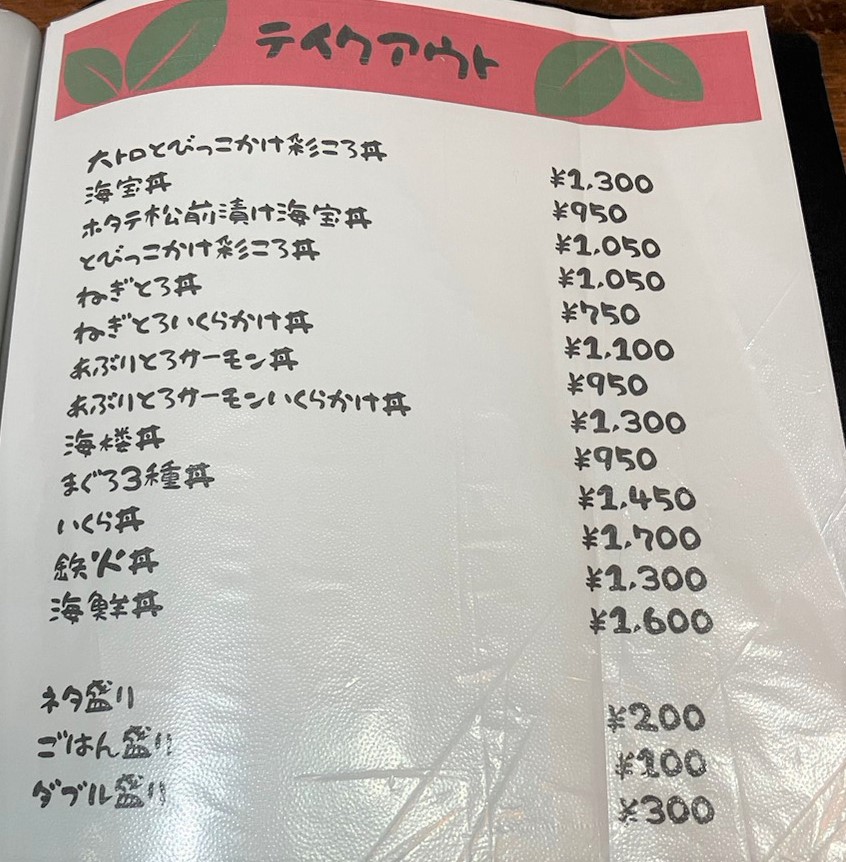 テイクアウト
大トロとびっこかけ彩ころ丼 ¥1,300
海宝丼 ¥950
ホタテ松前漬け海宝丼 ¥1,050
とびっこかけ彩ころ丼 ¥1,050
ねぎとろ丼 ¥750
ねぎとろいくらかけ丼 ¥1,100
あぶりとろサーモン丼 ¥950
あぶりとろサーモンいくらかけ丼 ¥1,300
海楼丼 ¥950
まぐろ3種丼 ¥1,450
いくら丼 ¥1,700
鉄火丼 ¥1,300
海鮮丼 ¥1,600
ネタ盛り ¥200
ごはん盛り ¥100
ダブル盛り ¥300